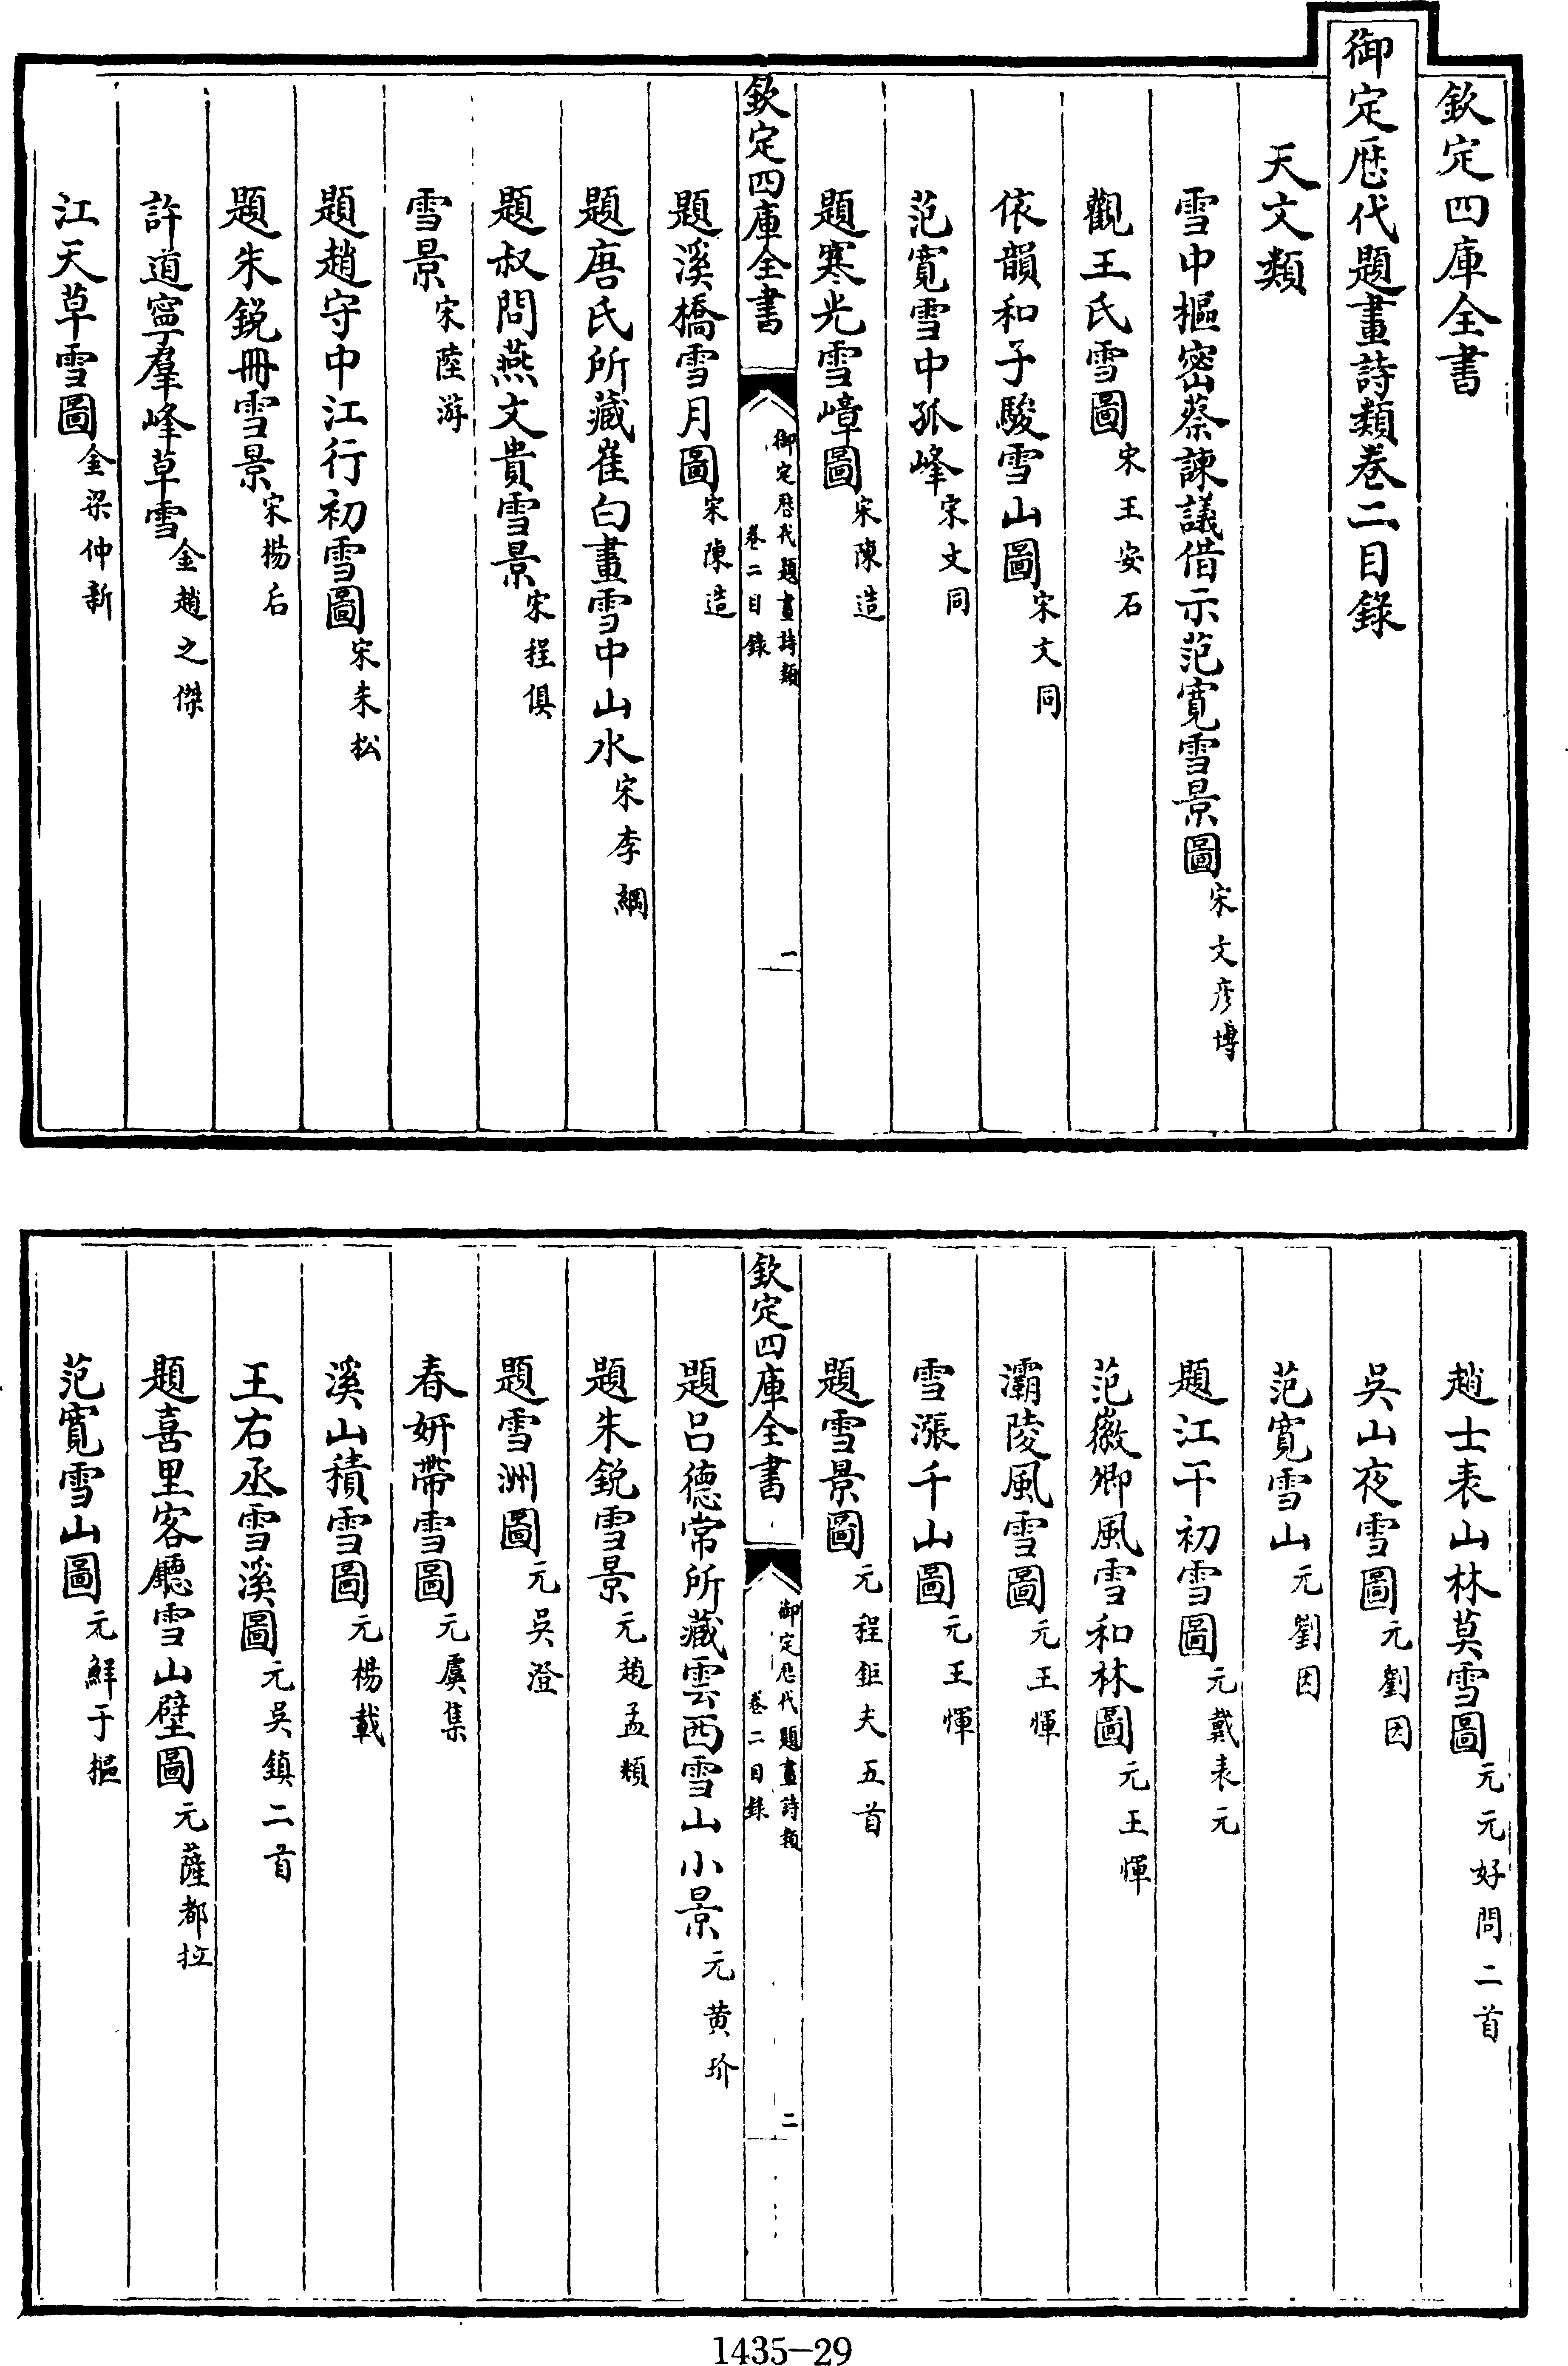 欽定四庫全書
御定歴代題畫詩類卷二目錄
天文類
雪中樞密蔡諫議借示范寬雪景圖宋文彦博
觀王氏雪圖宋王安石
依韻和子駿雪山圖宋文同
范寬雪中孤峰宋文同
題寒光雪嶂圖宋陳造
欽定四庫全書
御定歴代題畫詩類
卷二目錄
一
題溪橋雪月圖宋陳造
題唐氏所藏崔白畫雪中山水宋李綱
題叔問燕文貴雪景宋程俱
雪景宋陸游
題趙守中江行初雪圖宋朱松
題朱銳冊雪景宋楊后
許道寧羣峰草雪金趙之傑
江天草雪圖金梁仲新
趙士表山林莫雪圖元元好問二首
吳山夜雪圖元劉因
范寬雪山元劉因
題江干初雪圖元戴表元
范徽卿風雪和林圖元王惲
灞陵風雪圖元王惲
雪漲千山圖元王惲
題雪景圖元程鉅夫五首
欽定四庫全書
御定歴代題畫詩類
卷二目錄
二
題呂德常所藏雲西雪山小景元黄玠
題朱銳雪景元趙孟頫
題雪洲圖元吳澄
春妍帶雪圖元虞集
溪山積雪圖元楊載
王右丞雪溪圖元吳鎮二首
題喜里客廳雪山壁圖元薩都拉
范寬雪山圖元鮮于樞
1435-29